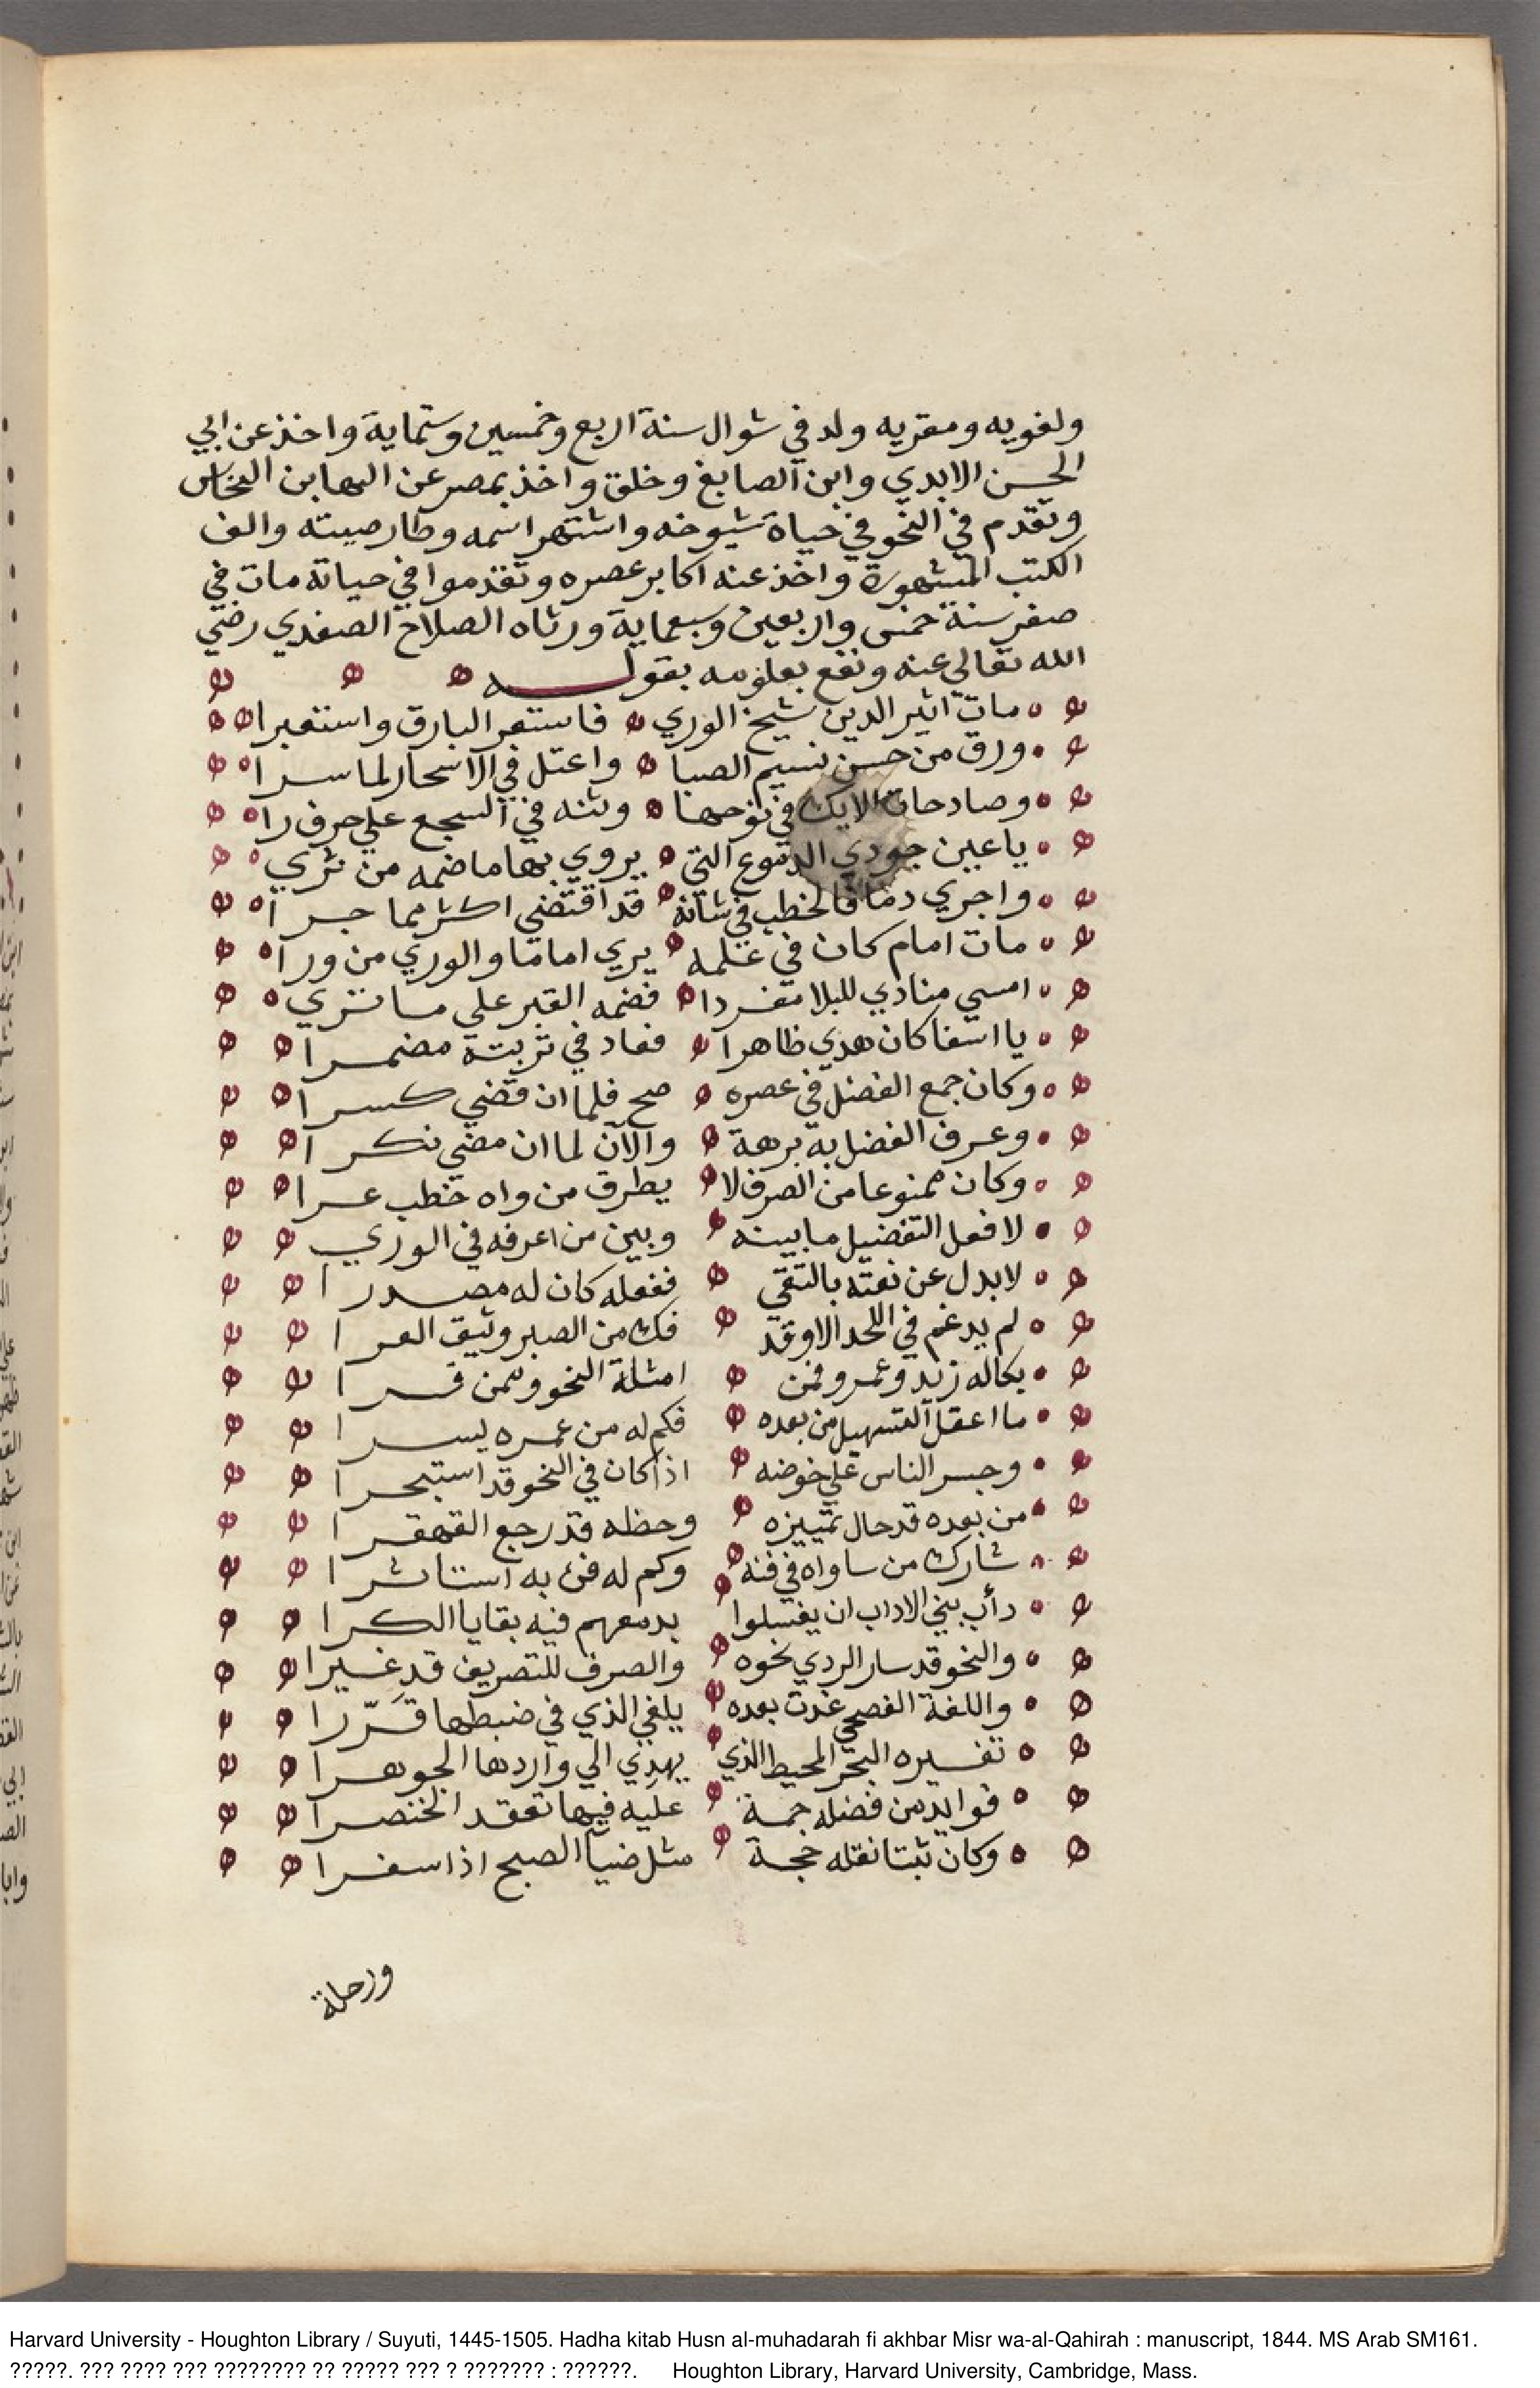 ولغويه ومقريه ولد في شوال سنة اربع وخمسين وستماية واخذ عن ابي
الحسن الابدي وابن الصايغ وخلق واخذ بمصر عن البها بن النحاس
وتقدم في النحو في حياة شيوخه واشتهر اسمه وطار صيته والف
الكتب المشهورة واخذ عنه اكابر عصره وتقدموا في حياته مات في
صفر سنة خمس واربعين وسبعماية ورثاه الصلاح الصفدي رضي
الله تعالى عنه ونفع بعلومه بقوله
مات اثير الدين شيخ الوري فاستعر البارق واستعبرا
ورق من حسن نسيم الصبا واعتل في الاسحار لما سرا
وصادحات الايك في نوحها رثته في السجع علي حرف را
ياعين جودي الدموع التي يروي بها ما ضمه من ثري
واجري دما فالخطب في شانه قد اقتضي اكثر مما جرا
مات امام كان في علمه يري اماما والوري من ورا
امسي منادي للبلا مفردا فضمه القبر علي ما تري
يا اسفا كان هدي ظاهرا فعاد في تربته مضمرا
وكان جمع الفضل في عصره صح فلما ان قضي كسرا
وعرف الفضل به برهة والان لما ان مضي نكرا
وكان ممنوعا من الصرف لا يطرق من واه خطب عرا
لا افعل التفضيل ما بينه وبين من اعرفه في الوري
لا بدل عن نعته بالتقي ففعله كان له مصدرا
لم يدغم في اللحد الا وقد فك من الصبر وثيق العرا
بكاله زيد وعمرو فمن امثلة النحو وممن قرا
ما اعقل التسهيل من بعده فكم له من عمره يسرا
وجسر الناس علي خوضه اذ كان في النحو قد استبحرا
من بعده قد حال تمييزه وحظه قد رجع القهقرا
شارك من ساواه في فنه وكم له فن به استاثرا
دأب بني الاداب ان يغسلوا بدمعهم فيه بقايا الكرا
والنحو قد سار الردي نحوه والصرف للتصريف قد غيرا
واللغة الفصحي غدت بعده يلغي الذي في ضبطها قرّرا
تفسيره البحر المحيط الذي يهدي الي واردها الجوهرا
فوايد من فضله جمة عليه فيها تعقد الخنصرا
وكان ثبتا نقله حجة مثل ضياالصبح اذا اسفرا
ورحلة
Harvard University - Houghton Library / Suyuti, 1445-1505. Hadha kitab Husn al-muhadarah fi akhbar Misr wa-al-Qahirah : manuscript, 1844. MS Arab SM161.
?????. ??? ???? ??? ???????? ?? ????? ??? ? ??????? : ??????. Houghton Library, Harvard University, Cambridge, Mass.